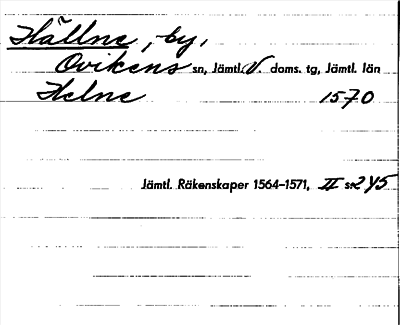 Hällne, by,
Ovikens sn, Jämtl. V. doms. tg, Jämtl. län
Helne 1570
Jämtl. Räkenskaper 1564-1571, II s. 245